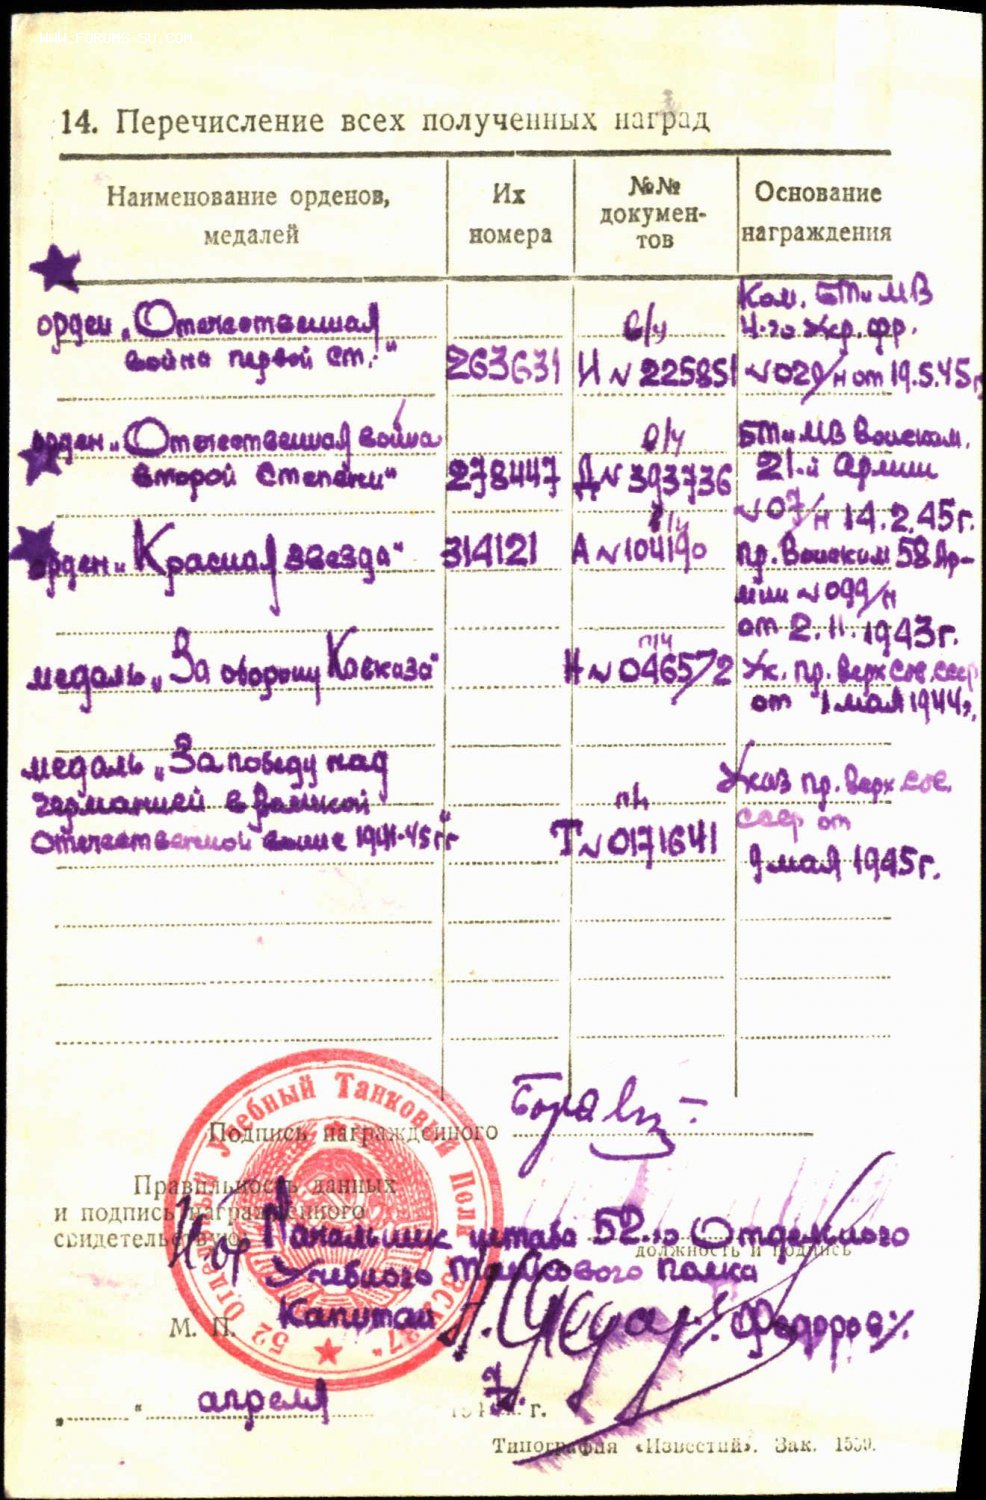 WWW.FORUMS-SU.COM
14. Перечисление всех полученных наград
Наименование орденов, медалей
Их номера
№№ докумен-тов
Основание награждения
орден „Отечественная
война первой ст."
263631
в/у
И № 225851
Ком. БТиМВ
4-го Укр. фр.
№ 029/н от 19.5.45г
орден „Отечественная война
второй степени"
278447
в/у
Д № 393736
БТиМВ Войскам.
21-й Армии
№ 07/н 14.2.45г.
орден „Красная звезда"
314121
в/у
А № 104190
пр. Войскам 58 Ар-
мии № 099/н
от 2.11.1943г.
медаль „За оборону Кавказа"
п/и
Н № 046572
Ук. пр. Верх Сов. ссср
от 1 мая 1944г.
медаль „За победу над
германией в Великой
Отечественной войне 1941-45гг"
Т № 0171641
Указ пр. верх сов.
ссср от
9 мая 1945г.
Подпись награжденного
Правильность данных
и подпись награжденного
свидетельствую
Начальник штаба 52-го Отдельного
должность и подпись
Учебного Танкового полка
Капитан
/Федоров/.
М. П.
52 Отдельный Учебный Танковый Полк
„ " апреля 7. г.
Типография «Известий». Зак.